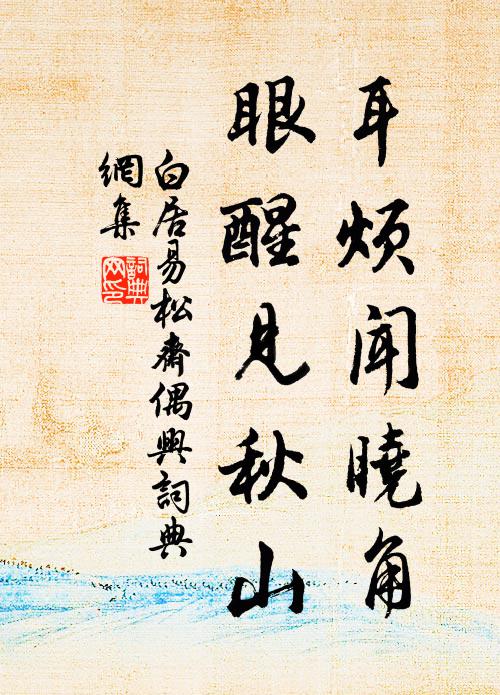 耳煩聞曉角
眼醒見秋山
白居易松齋偶興詞典
網集
詞典
网印